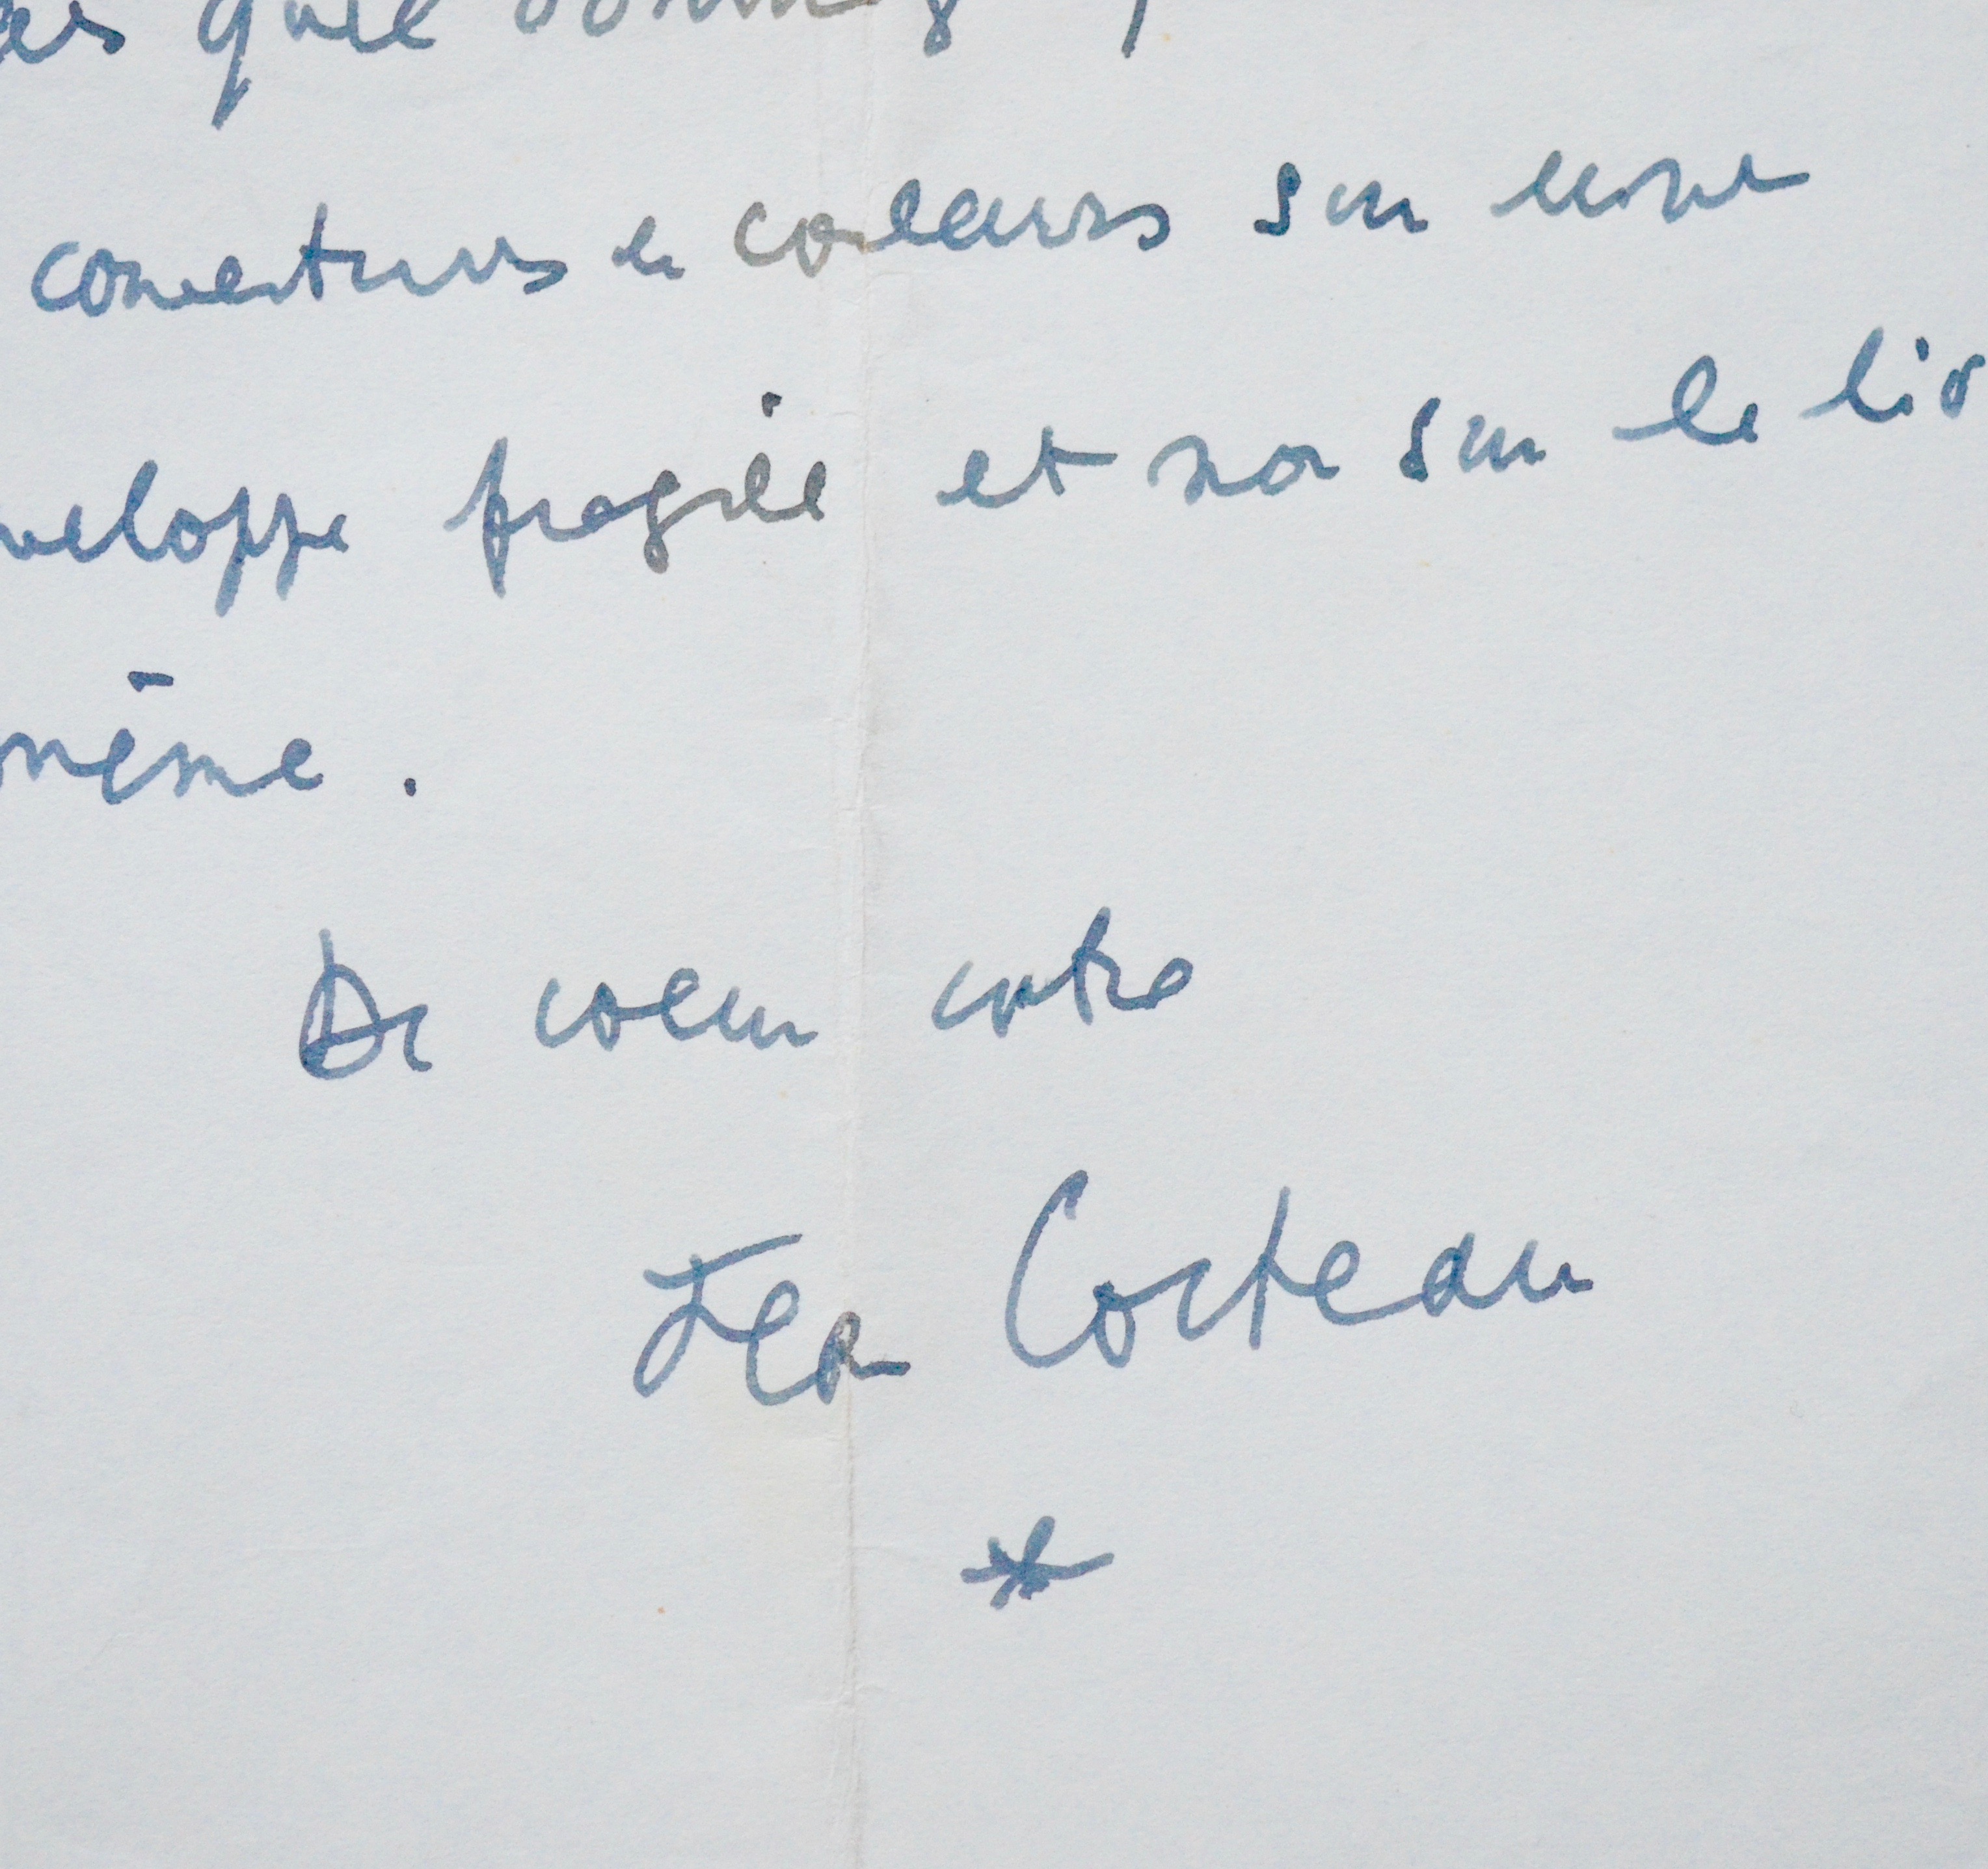 qu'il
couvertures de couleurs sur une
veloppe fragile et non sur le liv
même.
De coeur votre
Jean Cocteau
*